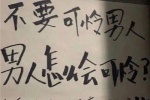 不要可怜男人
男人怎么会可怜？